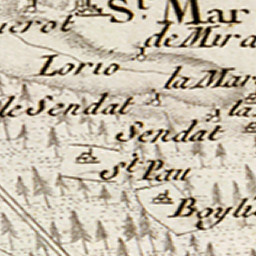 St. Mar
de Mira
Lorio
la Mar
le Sendat
la
Sendat
St Pau
Boyli